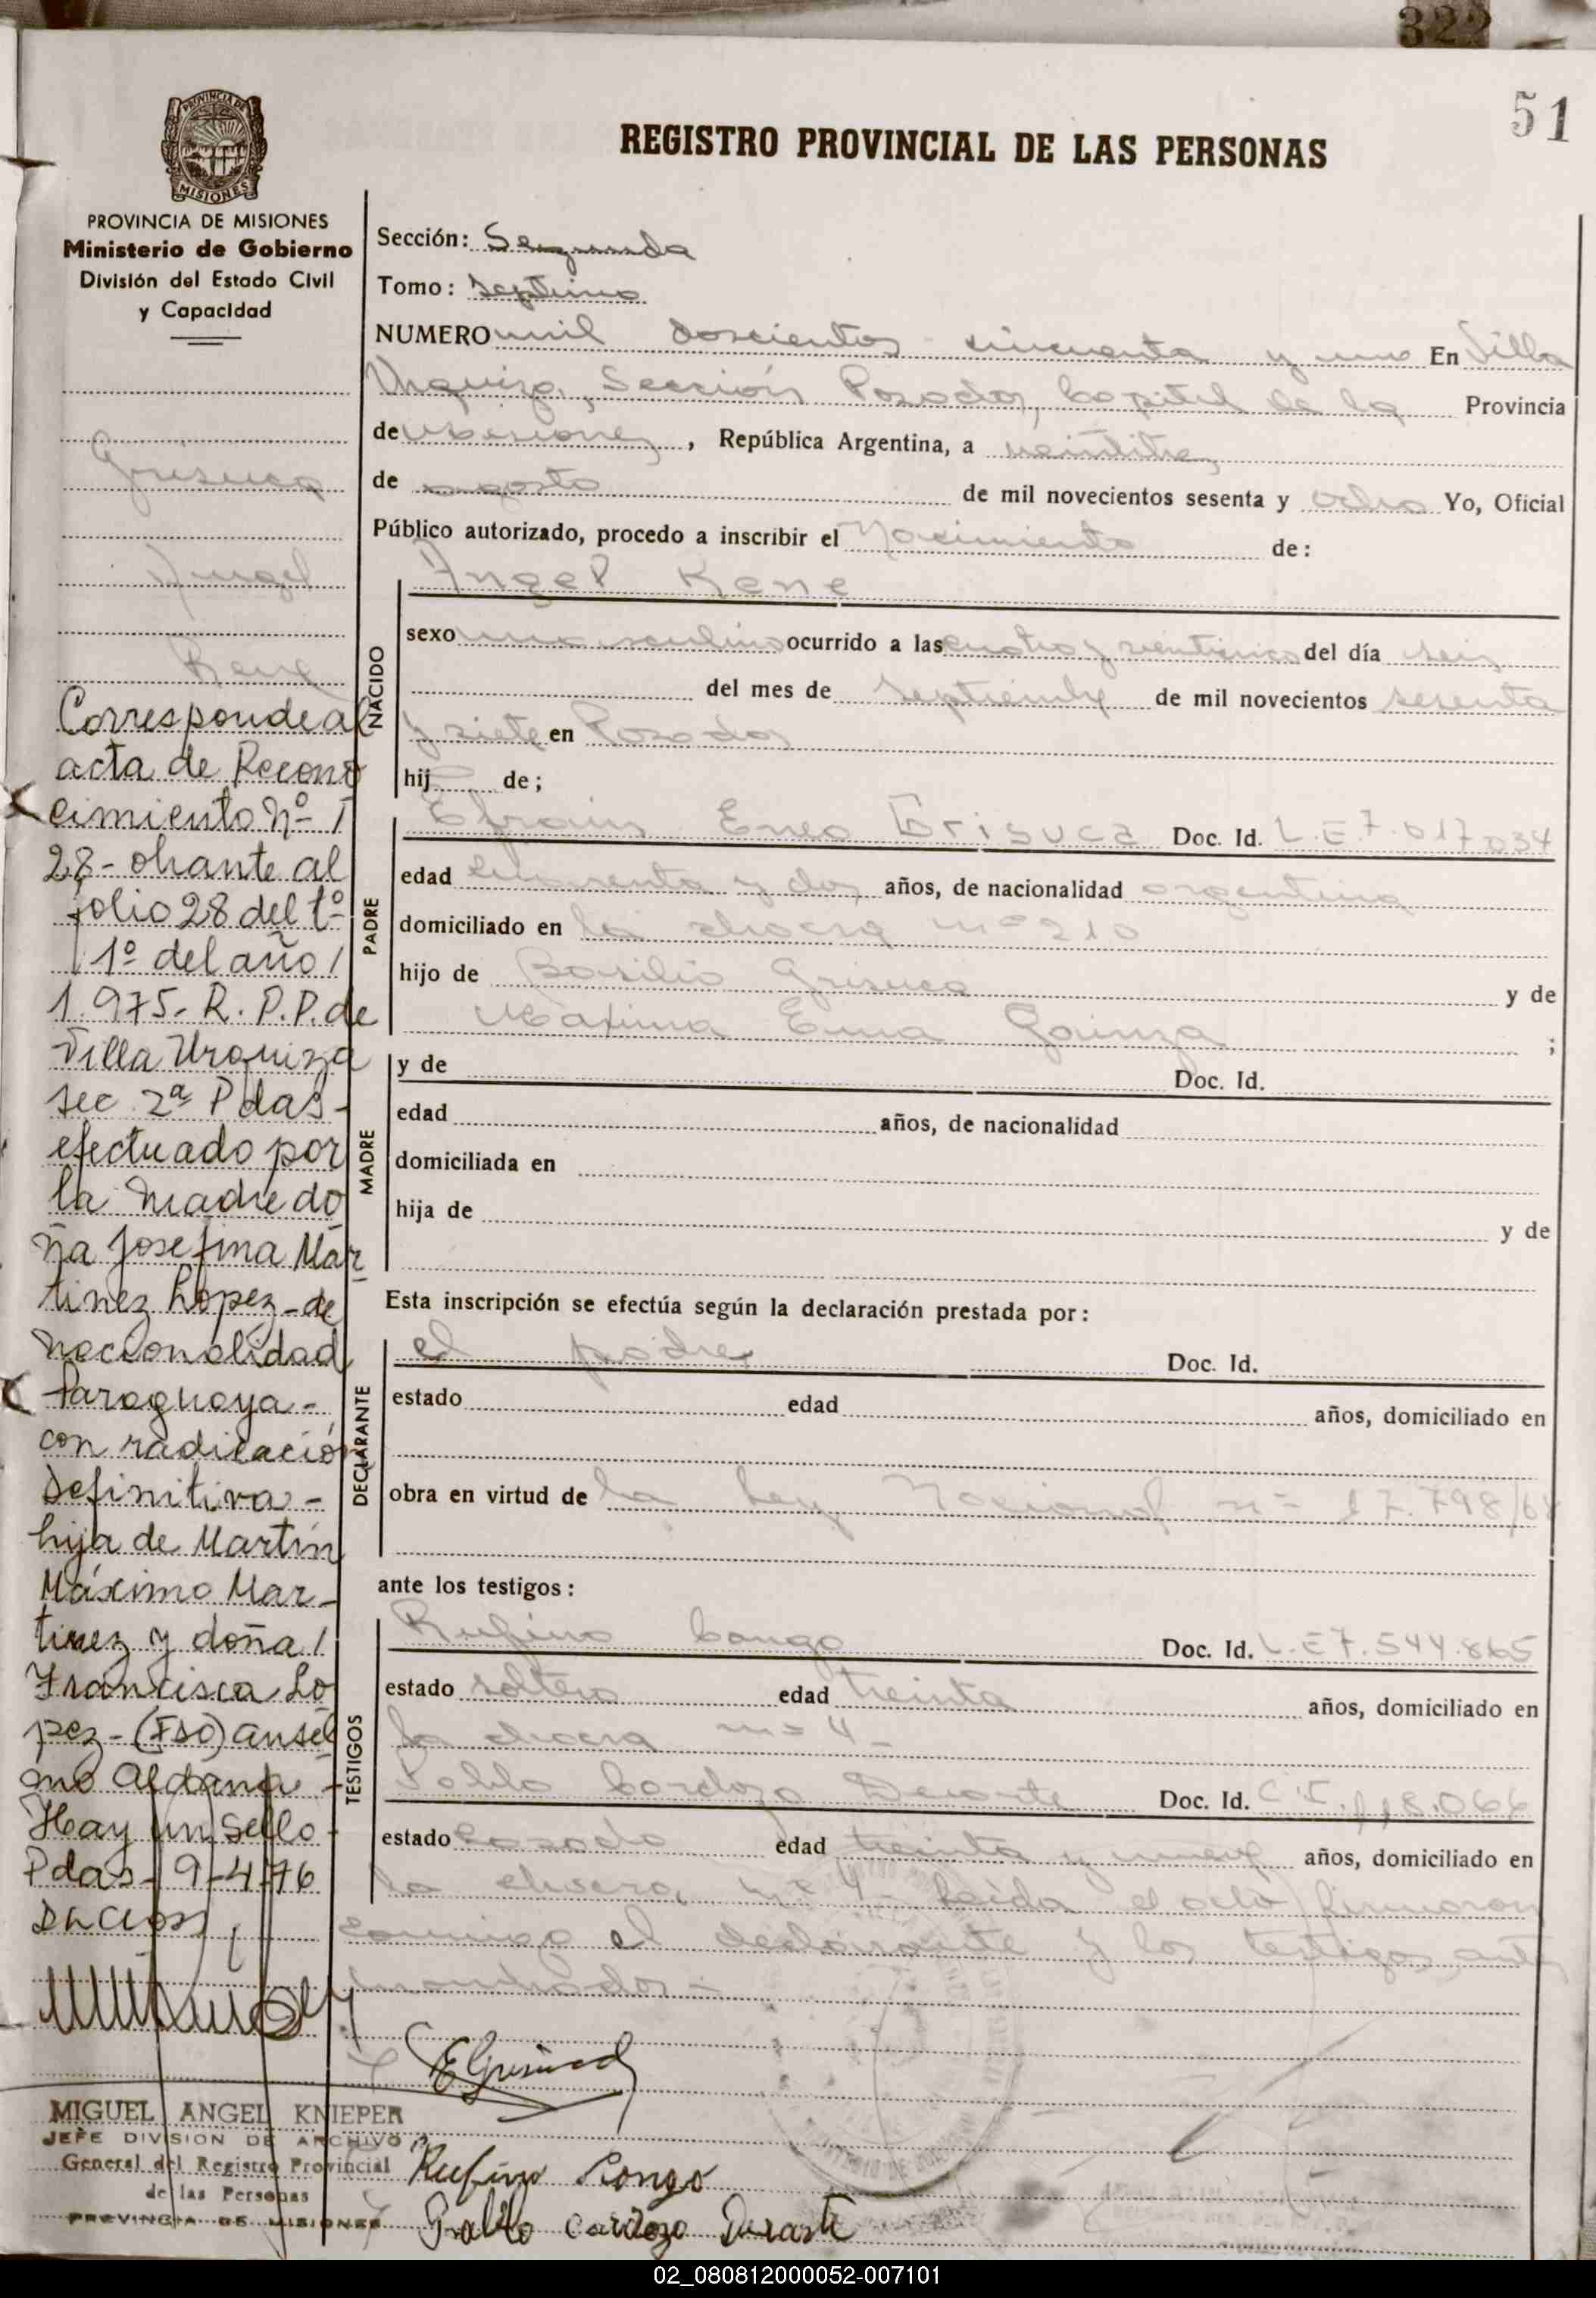 322
51
PROVINCIA DE
MISIONES
REGISTRO PROVINCIAL DE LAS PERSONAS
PROVINCIA DE MISIONES
Ministerio de Gobierno
División del Estado Civil
y Capacidad
Grisuca
Angel
Rene
Corresponde al
acta de Recono
cimiento Nº 1
28- obrante al
folio 28 del tº
1º del año /
1.975- R. P. P. de
Villa Urquiza
sec 2ª Pdas-
efectuado por
la madre do
ña Josefina Mar
tinez Lopez- de
nacionalidad
Paraguaya-
con radicación
definitiva-
hija de Martín
Máximo Mar-
tinez y doña /
Francisca Lo
pez- (Fdo) Ansel
mo Aldana -
Hay un sello-
Pdas- 9-4-76
MIGUEL ANGEL KNIEPER
JEFE DIVISION DE ARCHIVO
General del Registro Provincial
de las Personas
PROVINCIA DE MISIONES
Sección: Segunda
Tomo: Septimo
NUMERO mil doscientos cincuenta y uno En Villa
Urquiza, Sección Posadas, Capital de la Provincia
de Misiones, República Argentina, a veintitres
de agosto de mil novecientos sesenta y ocho Yo, Oficial
Público autorizado, procedo a inscribir el Nacimiento de:
NACIDO
Angel Rene
sexo masculino ocurrido a las cuatro y veinticinco del día seis
del mes de septiembre de mil novecientos sesenta
y siete en Posadas
hij de;
PADRE
Efrain Eneo Grisuca Doc. Id. L.E 7.017.034
edad cuarenta y dos años, de nacionalidad argentina
domiciliado en la chacra nº 210
hijo de Basilio Grisuca y de
Maxima Ema Gainza ;
MADRE
y de Doc. Id.
edad años, de nacionalidad
domiciliada en
hija de y de
Esta inscripción se efectúa según la declaración prestada por:
DECLARANTE
el padre Doc. Id.
estado edad años, domiciliado en
obra en virtud de la Ley Nacional nº 17.798/68
ante los testigos:
TESTIGOS
Rufino Congo Doc. Id. L.E 7.544.865
estado soltero edad treinta años, domiciliado en
la chacra nº 4-
Pablo Cardozo Duarte Doc. Id. C.I. 118.066
estado casado edad treinta y nueve años, domiciliado en
la chacra nº 4- Leida el acta firmaron
conmigo el declarante y los testigos ante
nombrados-
EGrisuca
Rufino Congo
Pablo Cardozo Duarte
02_080812000052-007101